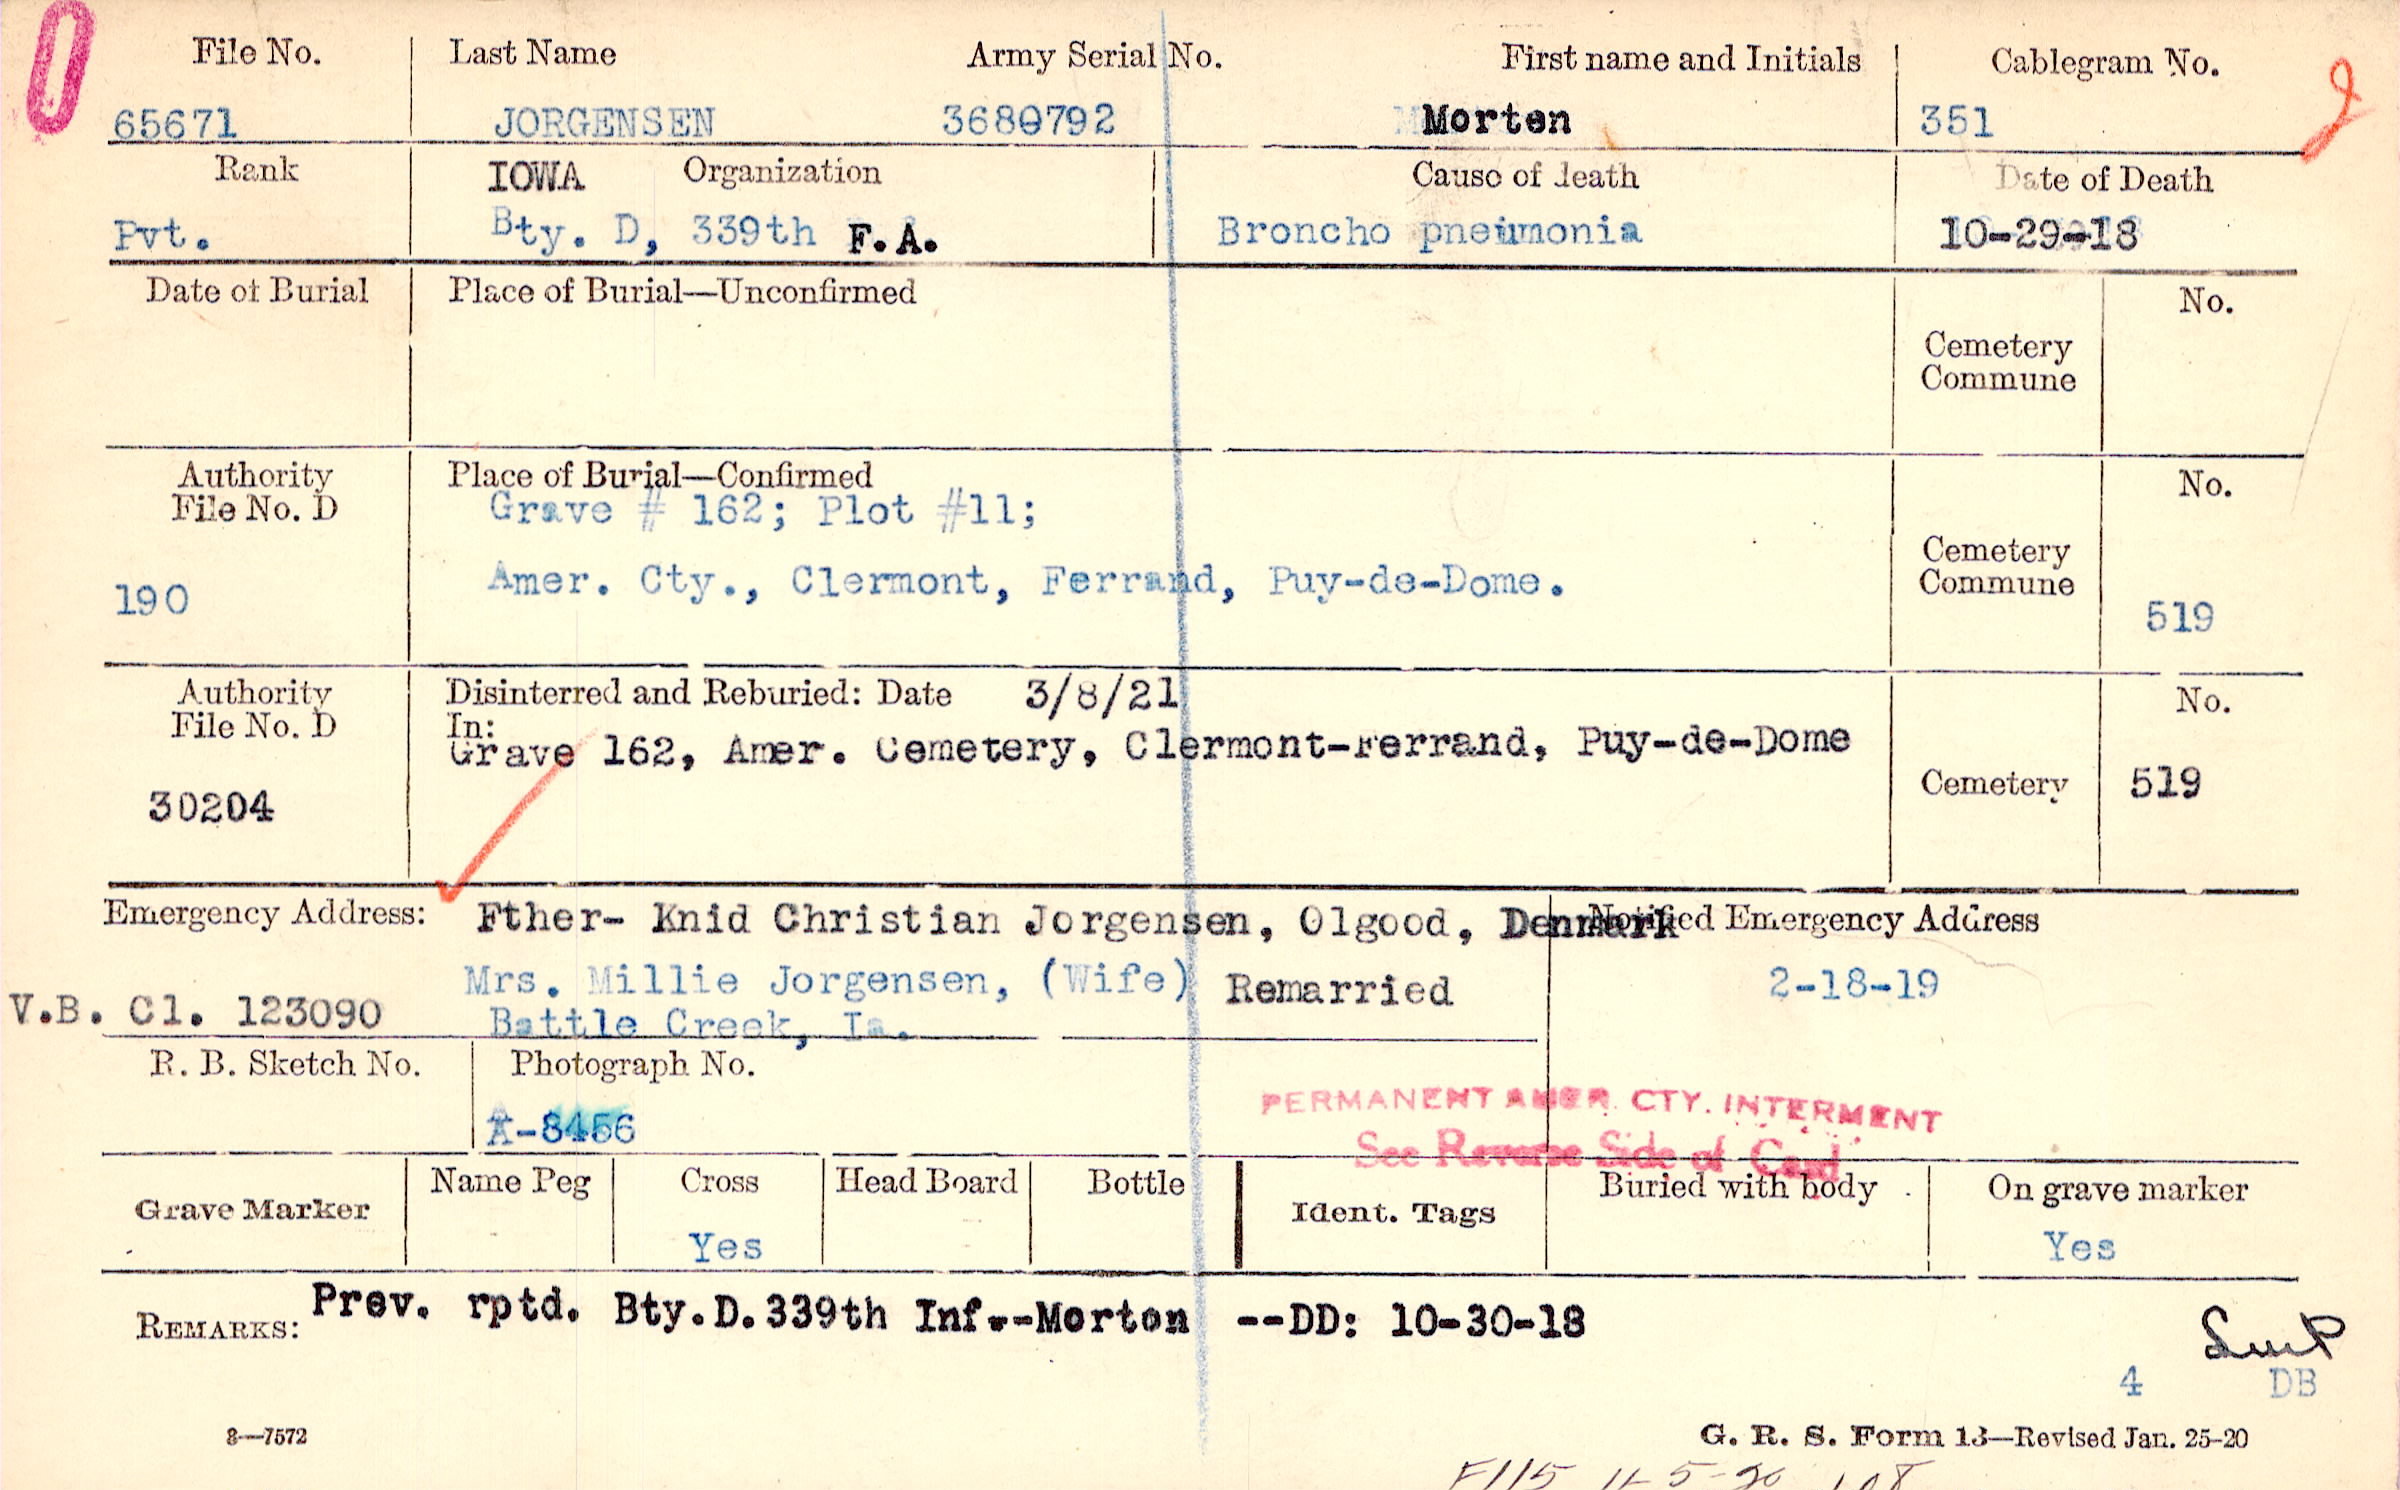 File No. Last Name Army Serial No. First name and Initials Cablegram No.
65671 JORGENSEN 3680792 Morten 351
Rank IOWA Organization Cause of death Date of Death
Pvt. Bty. D, 339th F.A. Broncho pneumonia 10-29-18
Date of Burial Place of Burial—Unconfirmed No.
Cemetery
Commune
Authority Place of Burial—Confirmed No.
File No. D Grave # 162; Plot #11;
Cemetery
190 Amer. Cty., Clermont, Ferrand, Puy-de-Dome. Commune
519
Authority Disinterred and Reburied: Date 3/8/21 No.
File No. D In:
Grave 162, Amer. Cemetery, Clermont-Ferrand, Puy-de-Dome
30204 Cemetery 519
Emergency Address: Fther- Knid Christian Jorgensen, Olgood, Denmark Notified Emergency Address
Mrs. Millie Jorgensen, (Wife) Remarried 2-18-19
V.B. Cl. 123090 Battle Creek, Ia.
R. B. Sketch No. Photograph No.
A-8456
PERMANENT AMER. CTY. INTERMENT
See Reverse Side of Card
Grave Marker Name Peg Cross Head Board Bottle Ident. Tags Buried with body On grave marker
Yes Yes
REMARKS: Prev. rptd. Bty.D.339th Inf.--Morton --DD: 10-30-18
4 DB
3—7572 G. R. S. Form 13—Revised Jan. 25-20